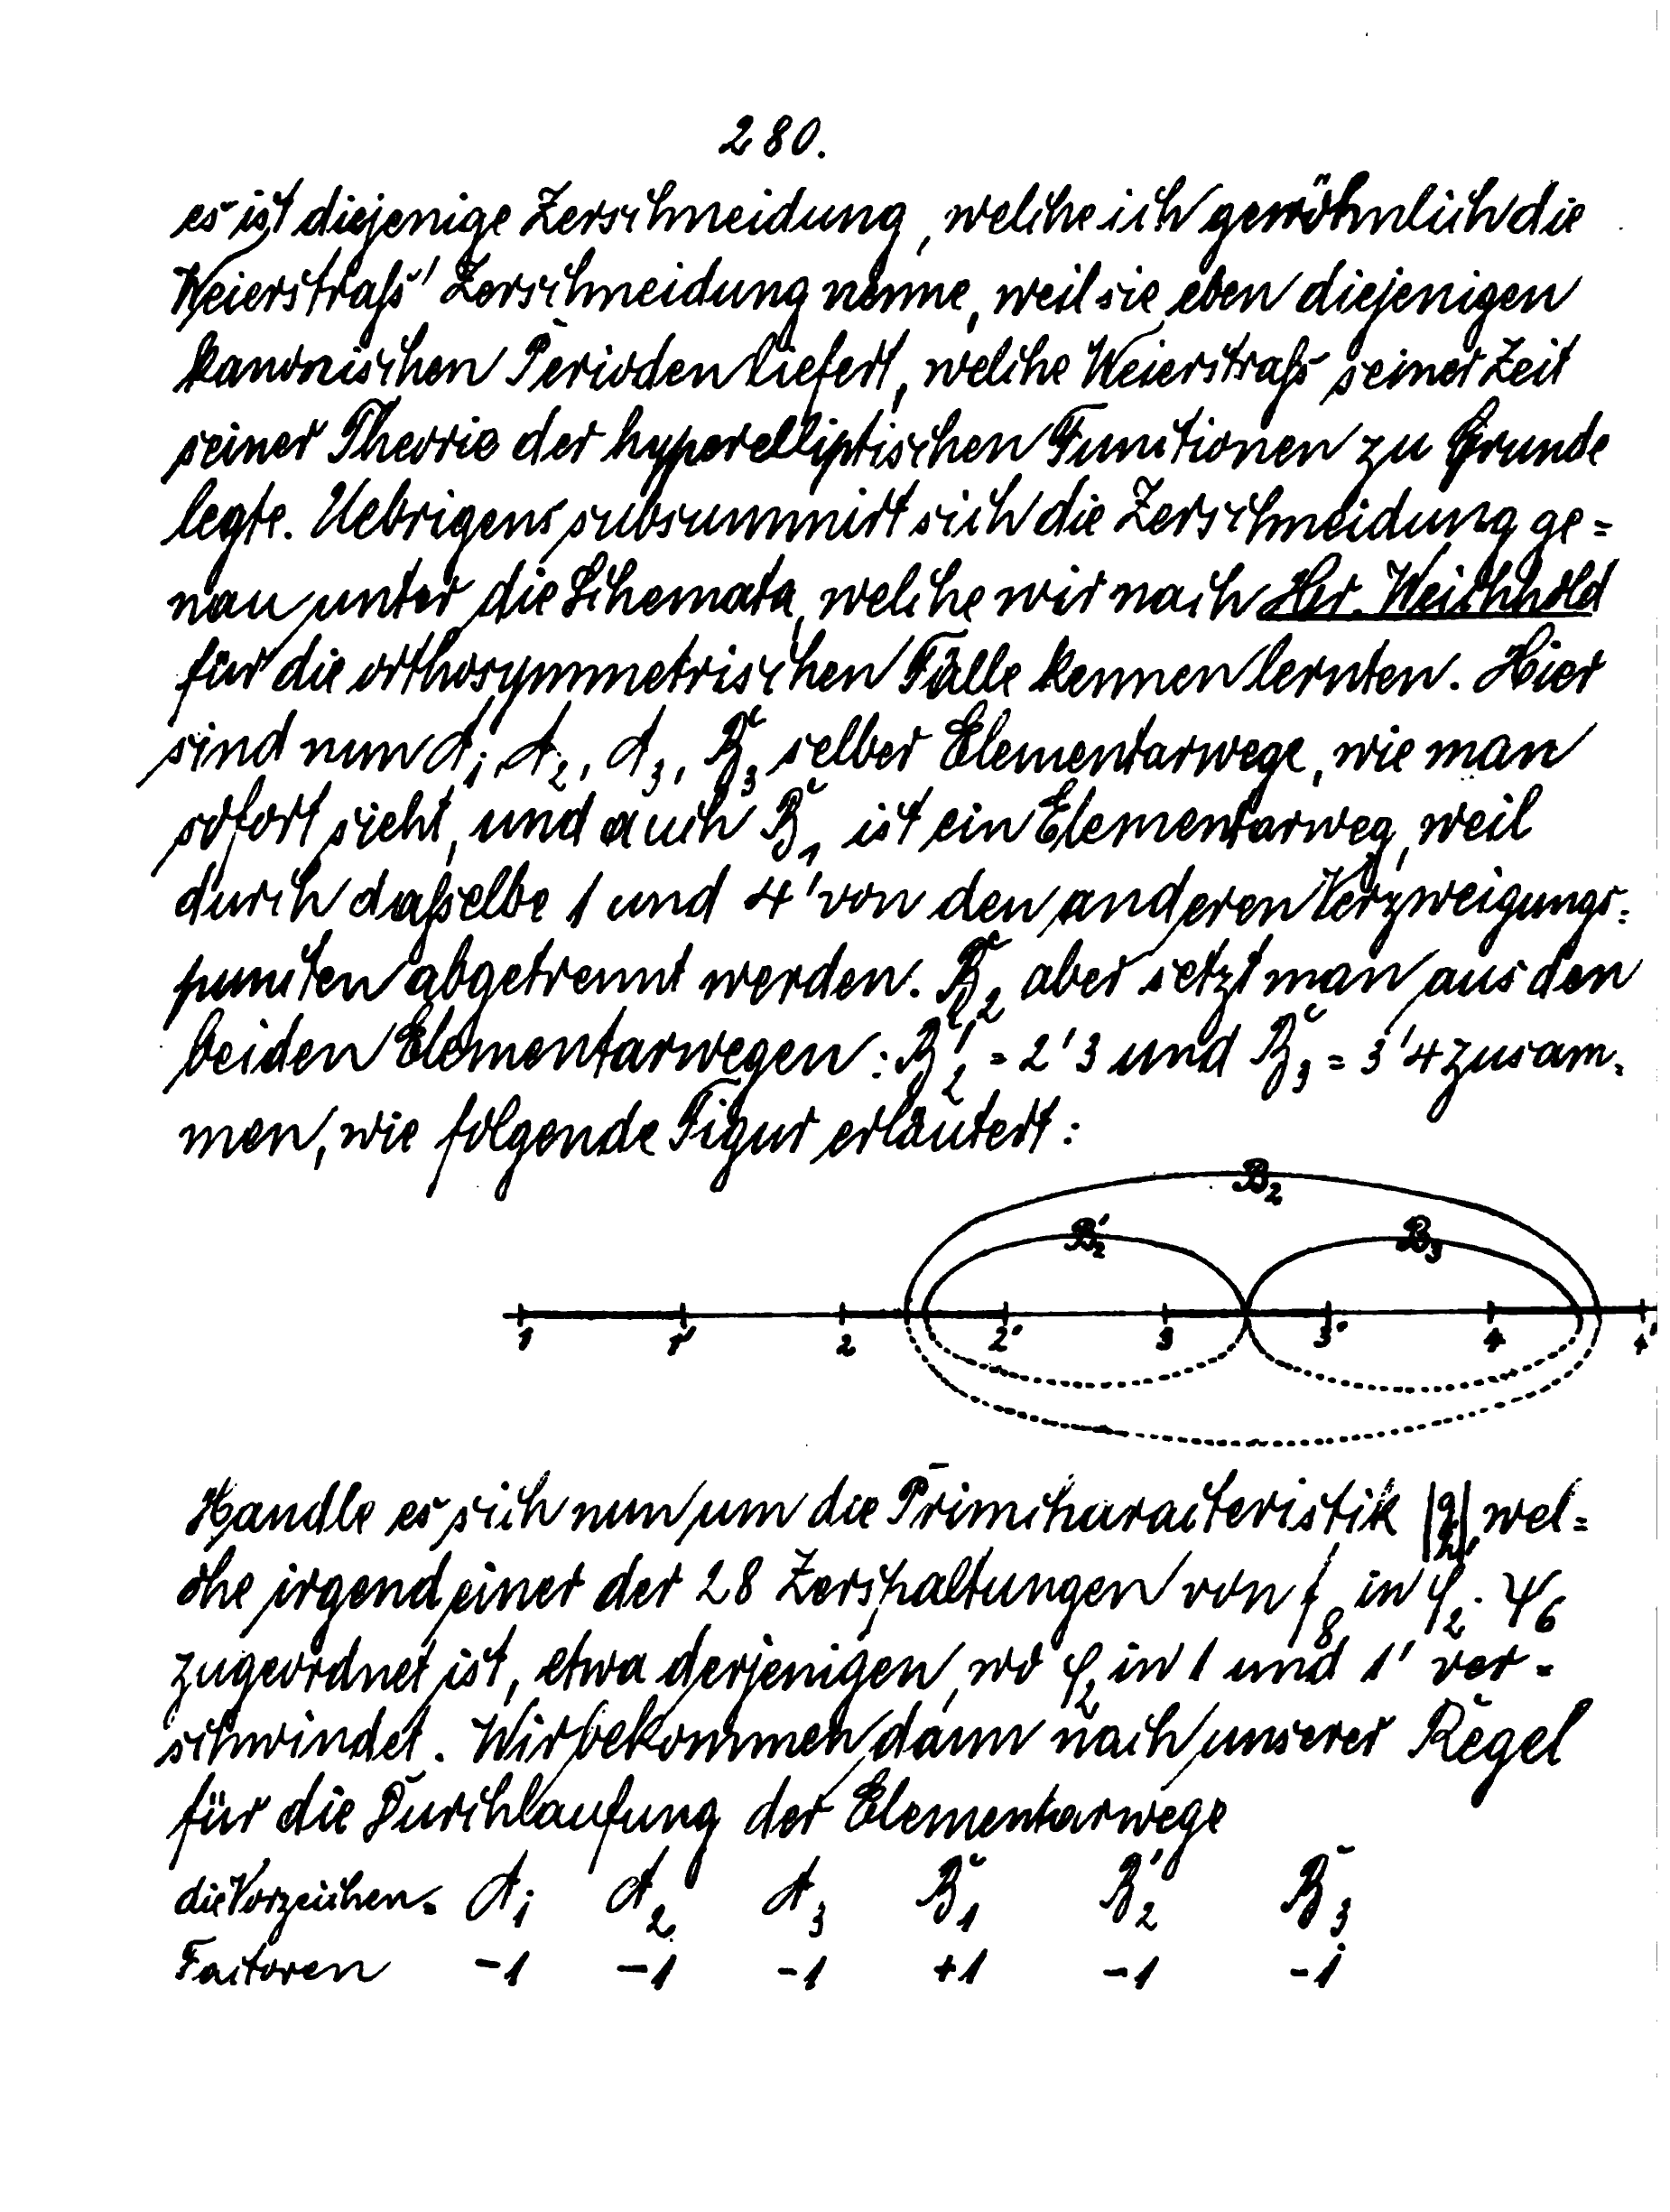 280.
es ist diejenige Zerschneidung, welche ich gewöhnlich die
Weierstraß' Zerschneidung nenne, weil sie eben diejenigen
kanonischen Perioden liefert, welche Weierstraß seiner Zeit
seiner Theorie der hyperelliptischen Functionen zu Grunde
legte. Uebrigens subsummirt sich die Zerschneidung ge=
nau unter die Schemata, welche wir nach Hr. Weichhold
für die orthosymmetrischen Fälle kennen lernten. Hier
sind nun A₁, A₂, A₃, B₃ selber Elementarwege, wie man
sofort sieht, und auch B₁ ist ein Elementarweg, weil
durch daßelbe 1 und 4' von den anderen Verzweigungs=
puncten abgetrennt werden. B₂ aber setzt man aus den
beiden Elementarwegen: B₂' = 2'3 und B₃ = 3'4 zusam=
men, wie folgende Figur erläutert:
B₂
B₂' B₃
1 1' 2 2' 3 3' 4 4'
Handle es sich nun um die Primcharacteristik |g/h|, wel=
che irgend einer der 28 Zerspaltungen von f₈ in φ₂ · ψ₆
zugeordnet ist, etwa derjenigen, wo φ₂ in 1 und 1' ver=
schwindet. Wir bekommen dann nach unserer Regel
für die Durchlaufung der Elementarwege
die Vorzeichen= A₁ A₂ A₃ B₁ B₂' B₃
Factoren -1 -1 -1 +1 -1 -1